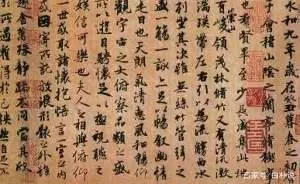 永和九年歲在癸丑暮春之初
于會稽山陰之蘭亭脩稧事
也群賢畢至少長咸集此地
有崇山峻領茂林脩竹又有清流激
湍暎帶左右引以為流觴曲水
列坐其次雖無絲竹管弦之
盛一觴一詠亦足以暢敘幽情
是日也天朗氣清惠風和暢仰
觀宇宙之大俯察品類之盛
所以遊目騁懷足以極視聽之
娛信可樂也夫人之相與俯仰
一世或取諸懷抱悟言一室之內
或因寄所託放浪形骸之外雖
趣舍萬殊靜躁不同當其欣
於所遇蹔得於己怏然自足不
百家号/